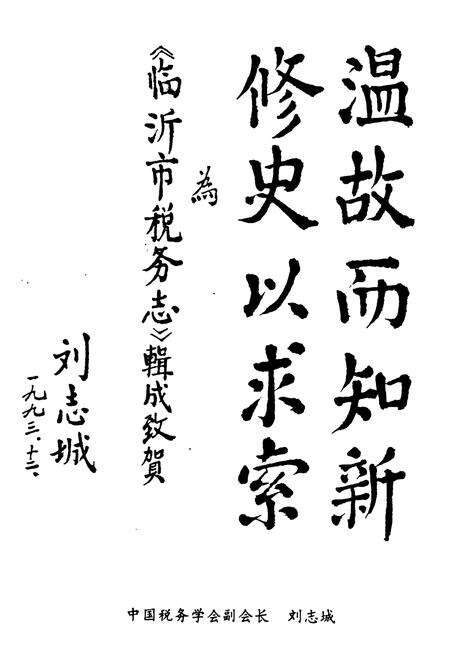 温故而知新
修史以求索
為
《临沂市税务志》輯成致賀
刘志城
一九九三.十二.
中国税务学会副会长 刘志城